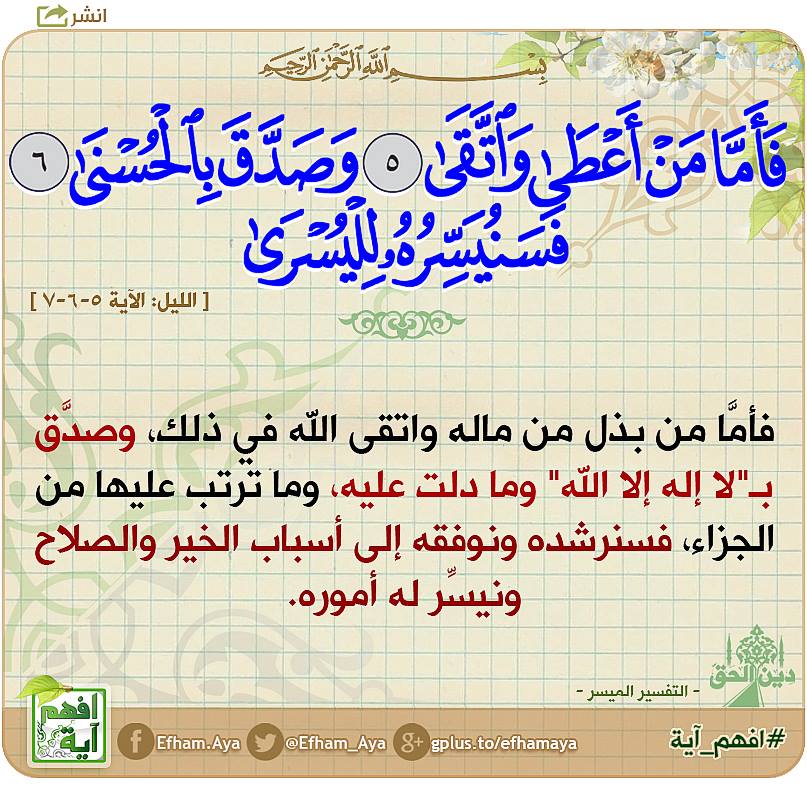 انشر
بِسْمِ ٱللَّهِ ٱلرَّحْمَٰنِ ٱلرَّحِيمِ
فَأَمَّا مَنْ أَعْطَىٰ وَٱتَّقَىٰ ٥ وَصَدَّقَ بِٱلْحُسْنَىٰ ٦
فَسَنُيَسِّرُهُۥ لِلْيُسْرَىٰ
[ الليل: الآية ٥-٦-٧ ]
فأمَّا من بذل من ماله واتقى الله في ذلك، وصدَّق
بـ"لا إله إلا الله" وما دلت عليه، وما ترتب عليها من
الجزاء، فسنرشده ونوفقه إلى أسباب الخير والصلاح
ونيسِّر له أموره.
دين الحق
- التفسير الميسر -
#افهم_آية
gplus.to/efhamaya
@Efham_Aya
Efham.Aya
افهم
آية